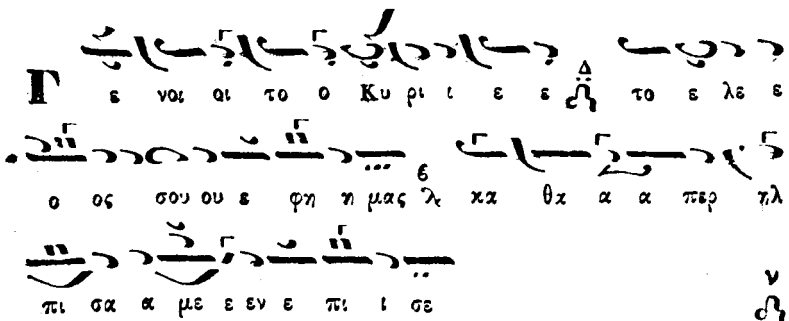 Γ ε νοι οι το ο Κυ ρι ι ε ε Δ το ε λε ε
ο ος σου ου ε φη η μας λ κα θα α α περ ηλ
πι σα α με ε εν ε πι ι σε ν